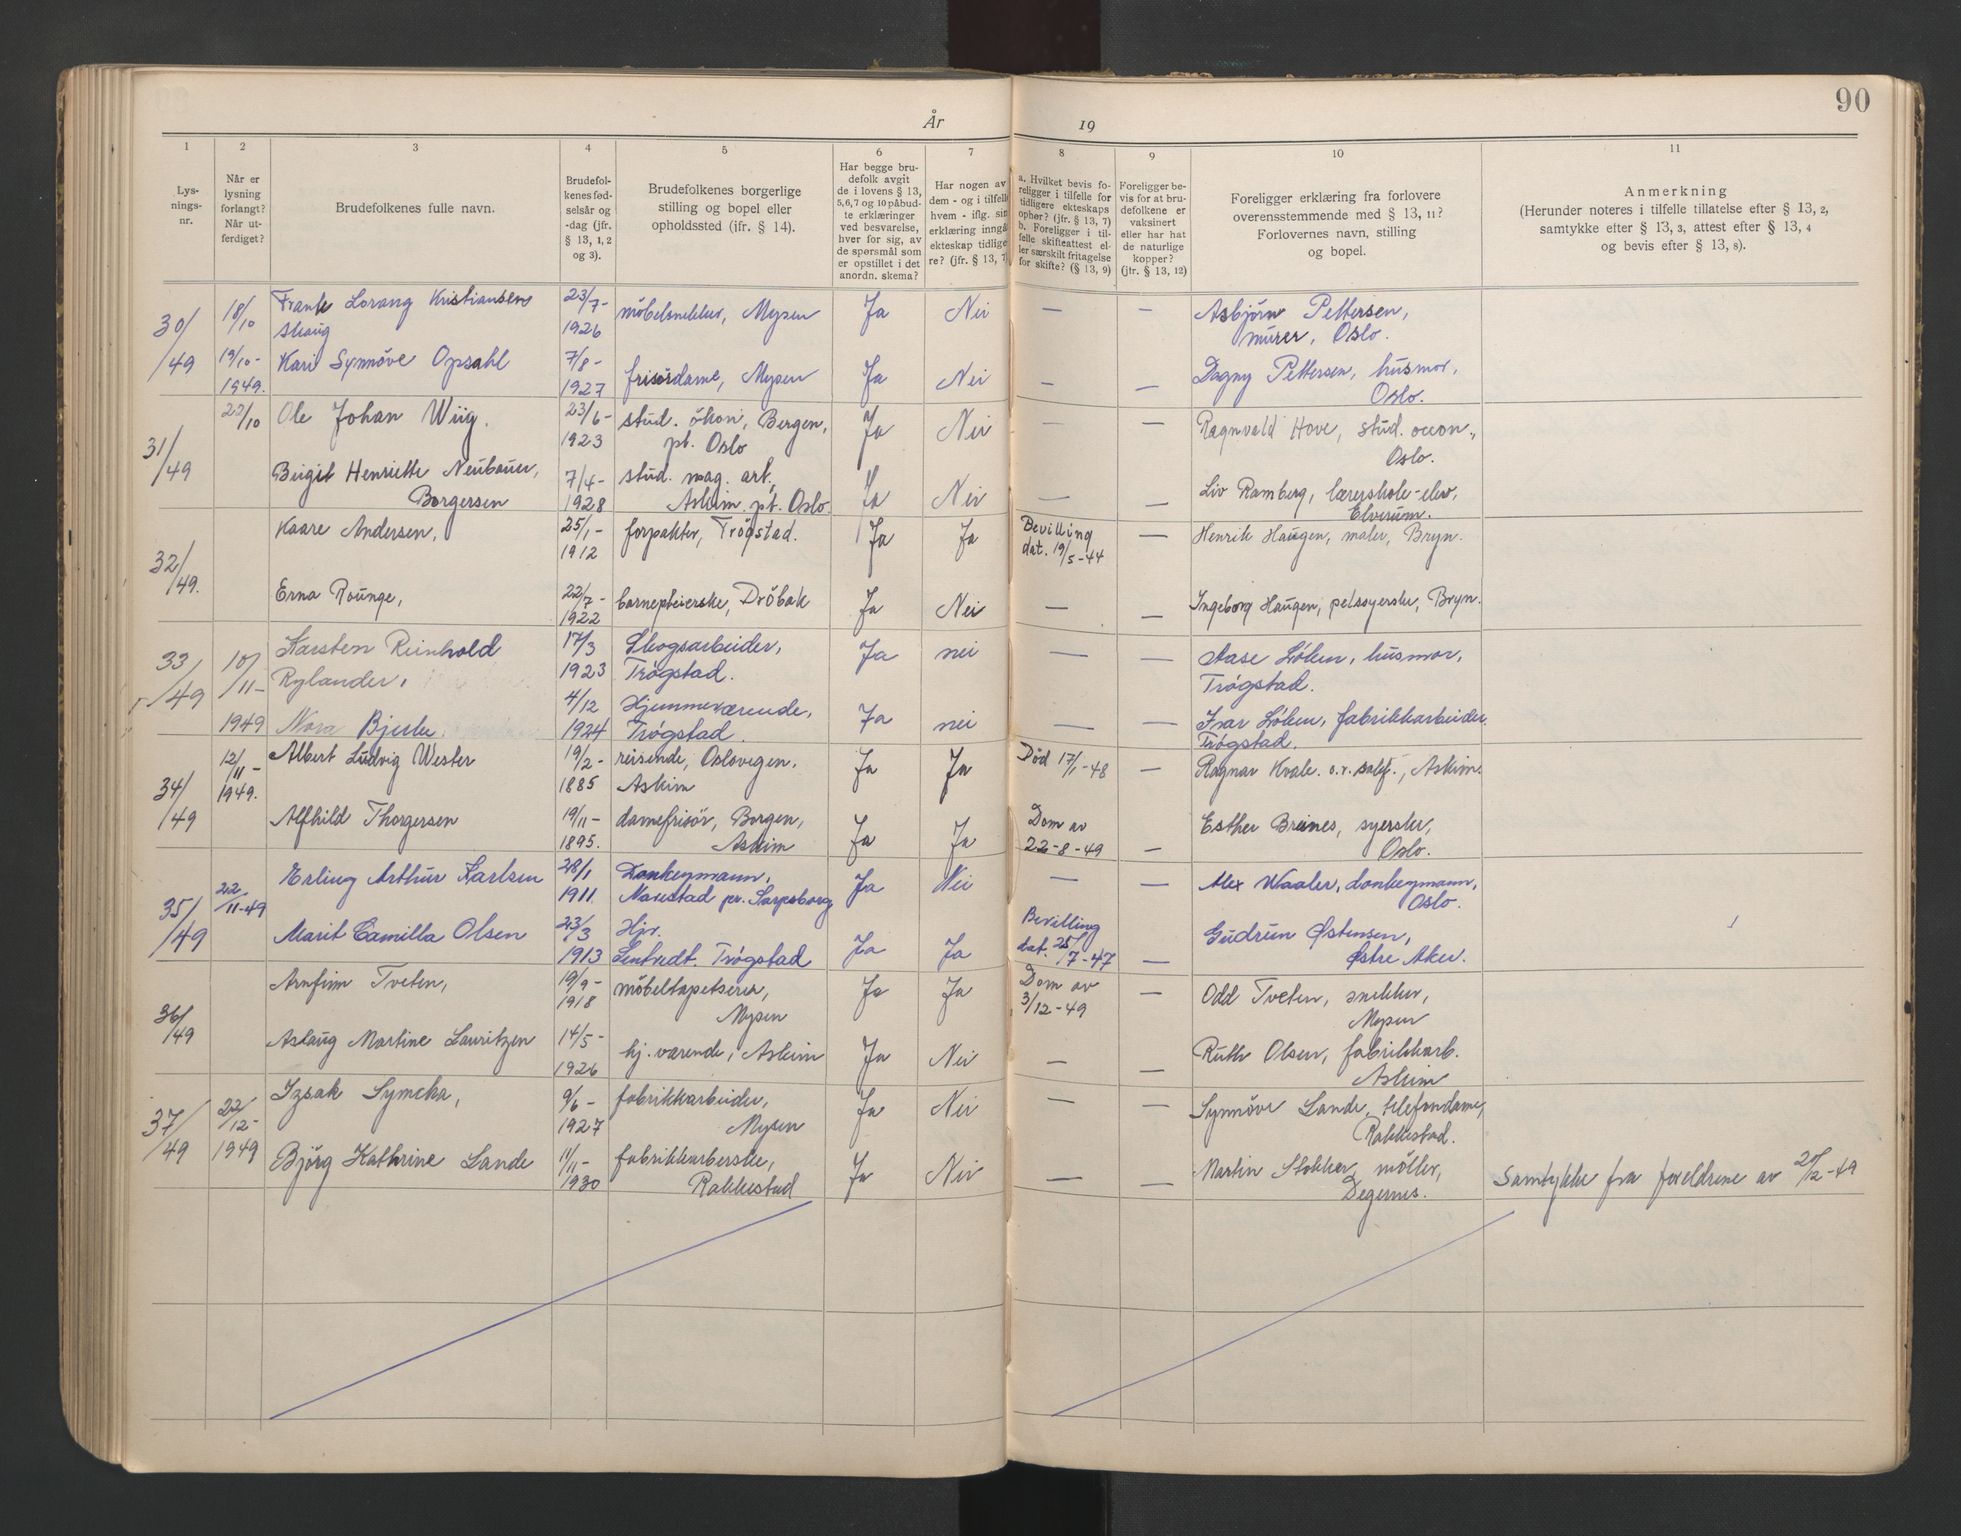 90
År 19
1 2 3 4 5 6 7 8 9 10 11
Lys-
nings-
nr.
Når er
lysning
forlangt?
Når ut-
ferdiget?
Brudefolkenes fulle navn.
Brudefol-
kenes fød-
selsår og
-dag (jfr.
§ 13, 1, 2
og 3).
Brudefolkenes borgerlige
stilling og bopel eller
opholdssted (jfr. § 14).
Har begge bru-
defolk avgit
de i lovens § 13,
5, 6, 7 og 10 påbud-
te erklæringer
ved besvarelse,
hver for sig, av
de spørsmål som
er opstillet i det
anordn. skema?
Har nogen av
dem - og i tilfelle
hvem - iflg. sin
erklæring inngå
ekteskap tidlige
re? (jfr. § 13, 7
a. Hvilket bevis fo-
religger i tilfelle for
tidligere ekteskaps
ophør? (jfr. § 13, 7)
b. Foreligger i til-
felle skifteattest el-
ler særskilt fritagelse
for skifte? (§ 13, 9)
Foreligger be-
vis for at bru-
defolkene er
vaksinert
eller har hat
de naturlige
kopper?
(jfr. § 13, 12)
Foreligger erklæring fra forlovere
overensstemmende med § 13, 11?
Forlovernes navn, stilling
og bopel.
Anmerkning
(Herunder noteres i tilfelle tillatelse efter § 13, 2,
samtykke efter § 13, 3, attest efter § 13, 4
og bevis efter § 13, 8).
30/49 18/10 Frank Lorang Kristiansen 23/7- møbelsnekker, Mysen Ja Nei — — Asbjörn Pettersen,
Skaug 1926 murer, Oslo.
19/10- Kari Synnöve Opsahl 7/8- frisördame, Mysen Ja Nei — — Dagny Pettersen, husmor,
1949. 1927 Oslo.
31/49 20/10 Ole Johan Wiig. 23/6- stud. ökon, Bergen, Ja Nei — — Ragnvald Hove, stud. oecon.,
1923 pt. Oslo Oslo.
Birgit Henriette Neubauer, 7/4- stud. mag. art, Ja Nei — — Liv Ramberg, lærerskole-elev,
Borgersen 1928 Askim. pt. Oslo. Elverum.
32/49. Kaare Andersen, 25/1- forpakter, Trögstad. Ja Ja Bevilling — Henrik Haugen, maler, Bryn.
1912 dat. 19/5-44
Erna Rounge, 22/7- barnepleierske, Dröbak Ja Nei — — Ingeborg Haugen, pelssyerske, Bryn.
1922
33/49 10/11- Karsten Reinhold 17/3 Skogsarbeider, Ja nei — — Aase Løken, husmor,
Rylander, 1923 Trøgstad. Trøgstad.
1949 Nora Bjerke 4/12 Hjemmeværende, Ja nei — — Ivar Løken, fabrikkarbeider
1924 Trøgstad. Trøgstad.
34/49 12/11- Albert Ludvig Wester 19/2- reisende, Oslovegen, Ja Ja Død 17/1-48 — Ragnar Kvale. o.r. salgf., Askim.
1949. 1885 Askim
Alfhild Thorgersen 19/11- damefrisör, Borgen, Ja Ja Dom av — Esther Breines, syerske,
1895. Askim 22-8-49 Oslo.
35/49 22/11-49 Erling Arthur Karlsen 28/1 Donkeymann, Ja Nei — — Alex Waaler, donkeymann,
1911. Navestad pr. Sarpsborg Oslo.
Marit Camilla Olsen 23/3 Hjv. Ja Ja Bevilling — Gudrun Østensen,
1913 Sentvedt. Trøgstad dat. 25/7-47 Østre Aker.
36/49 Arnfinn Tveten, 19/9- möbeltapetserer, Ja Ja Dom av — Odd Tveten, snekker,
1918 Mysen 3/12-49 Mysen
Aslaug Martine Lauritzen 14/5- hj. værende, Askim Ja Nei — — Ruth Olsen, fabrikkarb.
1926 Askim
37/49 22/12- Izsak Symcha, 9/6- fabrikkarbeider, Ja Nei — — Synnöve Lande, telefondame,
1949 1927 Mysen Rakkestad.
Björg Kathrine Lande 11/11- fabrikkarberske, Ja Nei — — Martin Stokker, möller, Samtykke fra foreldrene av 20/12-49
1930 Rakkestad Degernes.